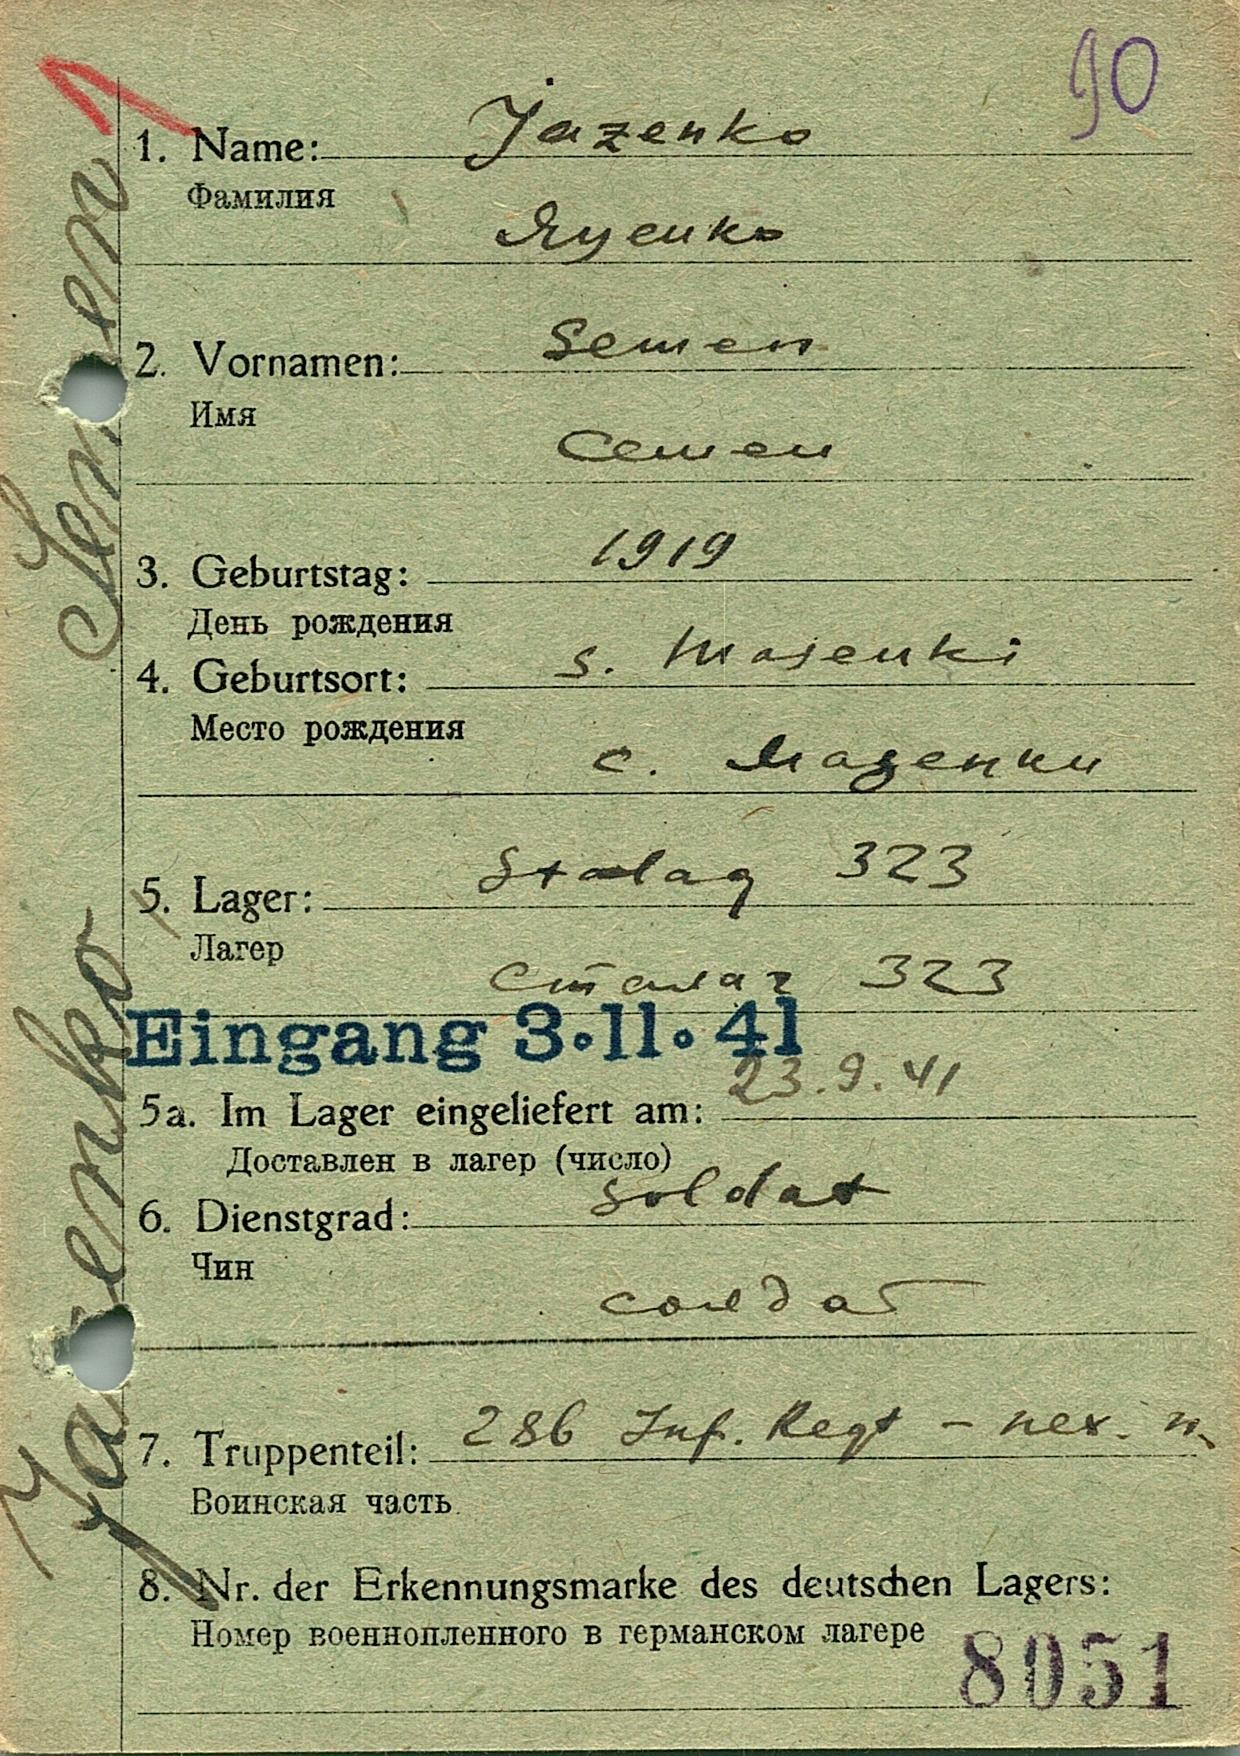 90
1. Name: Jazenko
Фамилия
Яценко
2. Vornamen: Semen
Имя
Семен
3. Geburtstag: 1919
День рождения
4. Geburtsort: s. Masenki
Место рождения
с. Мазенки
5. Lager: Stalag 323
Лагер
Сталаг 323
Eingang 3.11.41
5a. Im Lager eingeliefert am: 23.9.41
Доставлен в лагер (число)
6. Dienstgrad: Soldat
Чин
солдат
7. Truppenteil: 286 Inf. Regt - пех. п.
Воинская часть
8. Nr. der Erkennungsmarke des deutschen Lagers:
Номер военнопленного в германском лагере
8051
Jazenko Semen